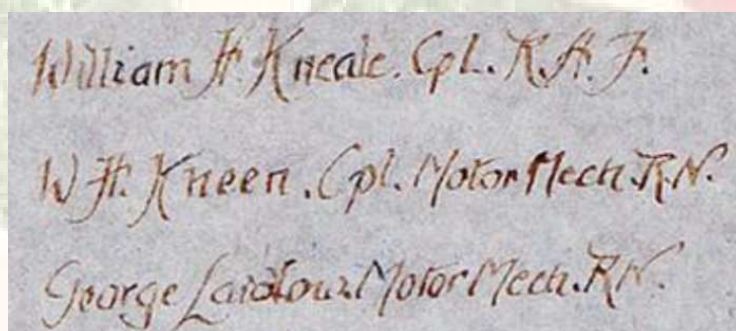 William H. Kneale. Cpl. R.A.F.
W. H. Kneen. Cpl. Motor Mech. R.N.
George Laidlow. Motor Mech. R.N.